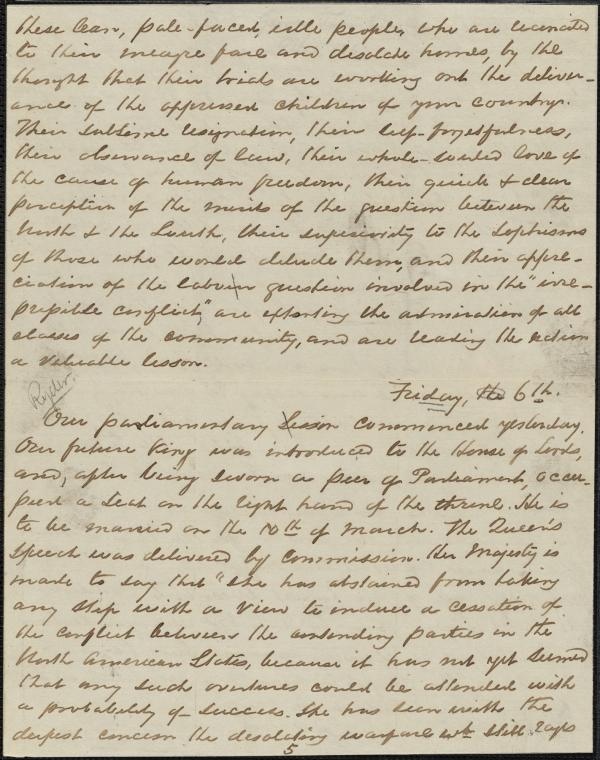 these lean, pale-faced, idle people, who are reconciled
to their meagre fare and desolate homes, by the
thought that their trials are working out the deliver-
ance of the oppressed children of your country.
Their sublime resignation, their self-forgetfulness,
their observance of law, their whole-souled love of
the cause of human freedom, their quick & clear
perception of the merits of the question between the
North & the South, their superiority to the sophisms
of those who would delude them, and their appre-
ciation of the labour question involved in the "irre-
pressible conflict," are extorting the admiration of all
classes of the community, and are reading the nation
a valuable lesson.
Friday, the 6th.
Ryder.
Our parliamentary session commenced yesterday.
Our future King was introduced to the House of Lords,
and, after being sworn a peer of Parliament, occu-
pied a seat on the right hand of the throne. He is
to be married on the 10th of March. The Queen's
speech was delivered by commission. Her Majesty is
made to say that "She has abstained from taking
any step with a view to induce a cessation of
the conflict between the contending parties in the
North American States, because it has not yet seemed
that any such overtures could be attended with
a probability of success. She has seen with the
deepest concern the desolating warfare wh still rages
5